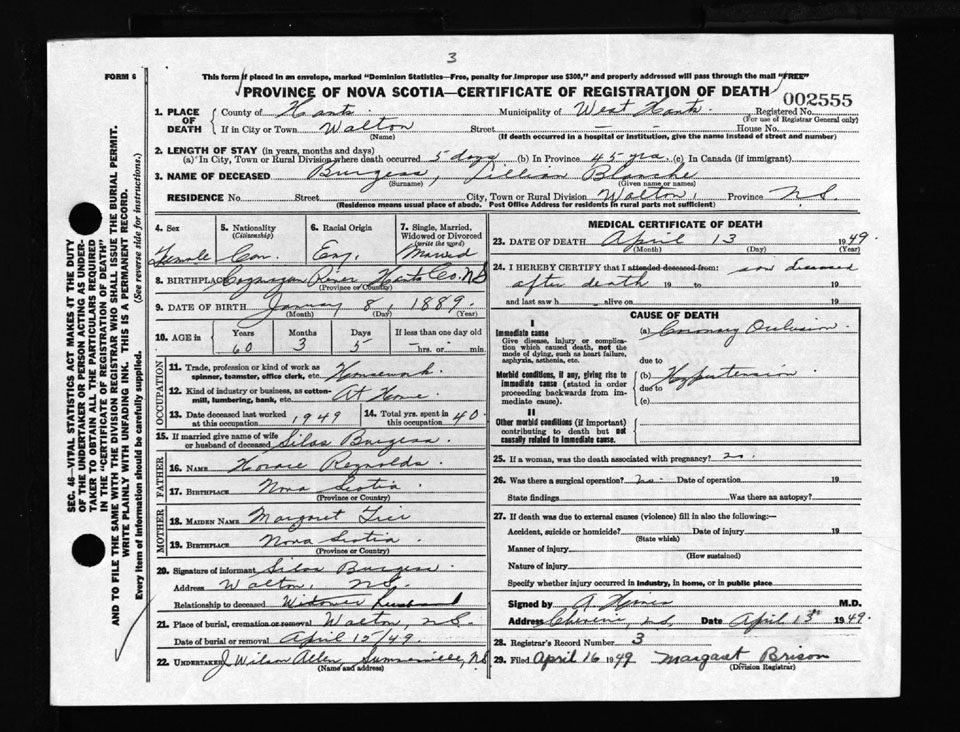 3
FORM 6
This form if placed in an envelope, marked "Dominion Statistics—Free, penalty for improper use $300," and properly addressed will pass through the mail "FREE"
PROVINCE OF NOVA SCOTIA—CERTIFICATE OF REGISTRATION OF DEATH
002555
SEC. 46—VITAL STATISTICS ACT MAKES AT THE DUTY
OF THE UNDERTAKER OR PERSON ACTING AS UNDER-
TAKER TO OBTAIN ALL THE PARTICULARS REQUIRED
IN THE "CERTIFICATE OF REGISTRATION OF DEATH"
AND TO FILE THE SAME WITH THE DIVISION REGISTRAR WHO SHALL ISSUE THE BURIAL PERMIT.
WRITE PLAINLY WITH UNFADING INK. THIS IS A PERMANENT RECORD.
Every item of information should be carefully supplied. (See reverse side for instructions.)
1. PLACE OF DEATH County of Hants Municipality of West Hants Registered No.
(For use of Registrar General only)
If in City or Town Walton Street — — House No.
(Name) (If death occurred in a hospital or institution, give the name instead of street and number)
2. LENGTH OF STAY (in years, months and days)
(a) In City, Town or Rural Division where death occurred 5 days (b) In Province 45 yrs. (c) In Canada (if immigrant)
3. NAME OF DECEASED Burgess, Lillian Blanche
(Surname) (Given name or names)
RESIDENCE No. Street City, Town or Rural Division Walton, Province N.S.
(Residence means usual place of abode. Post Office Address for residents in rural parts not sufficient)
4. Sex 5. Nationality (Citizenship) 6. Racial Origin 7. Single, Married, Widowed or Divorced (write the word)
Female Can. Eng. Married
8. BIRTHPLACE River Hants Co. NS
(Province or Country)
9. DATE OF BIRTH January 8, 1889.
(Month) (Day) (Year)
10. AGE in Years Months Days If less than one day old
60 3 5 — hrs. or — min.
OCCUPATION
11. Trade, profession or kind of work as spinner, teamster, office clerk, etc. Housework.
12. Kind of industry or business, as cotton-mill, lumbering, bank, etc. At Home
13. Date deceased last worked at this occupation 1949 14. Total yrs. spent in this occupation 40.
15. If married give name of wife or husband of deceased Silas Burgess.
FATHER
16. NAME Horace Reynolds.
17. BIRTHPLACE Nova Scotia
(Province or Country)
MOTHER
18. MAIDEN NAME Margaret
19. BIRTHPLACE Nova Scotia.
(Province or Country)
20. Signature of informant Silas Burgess.
Address Walton, N.S.
Relationship to deceased Widower husband
21. Place of burial, cremation or removal Walton, N.S.
Date of burial or removal April 15/49.
22. UNDERTAKER J Wilson Allen, NS
(Name and address)
MEDICAL CERTIFICATE OF DEATH
23. DATE OF DEATH April 13 1949.
(Month) (Day) (Year)
24. I HEREBY CERTIFY that I attended deceased from: saw deceased
after death 19 to 19
and last saw h alive on 19
CAUSE OF DEATH
I
Immediate cause (a) Coronary Occlusion.
Give disease, injury or complication which caused death, not the mode of dying, such as heart failure, asphyxia, asthenia, etc.
due to
Morbid conditions, if any, giving rise to immediate cause (stated in order proceeding backwards from immediate cause).
(b) Hypertension
due to
(c)
II
Other morbid conditions (if important) contributing to death but not causally related to immediate cause.
25. If a woman, was the death associated with pregnancy? no.
26. Was there a surgical operation? no. Date of operation 19
State findings Was there an autopsy?
27. If death was due to external causes (violence) fill in also the following:—
Accident, suicide or homicide? Date of injury 19
(State which)
Manner of injury
(How sustained)
Nature of injury
Specify whether injury occurred in industry, in home, or in public place
Signed by M.D.
Address N.S. Date April 13th 1949.
28. Registrar's Record Number 3
29. Filed April 16 1949 Margaret Brison
(Division Registrar)